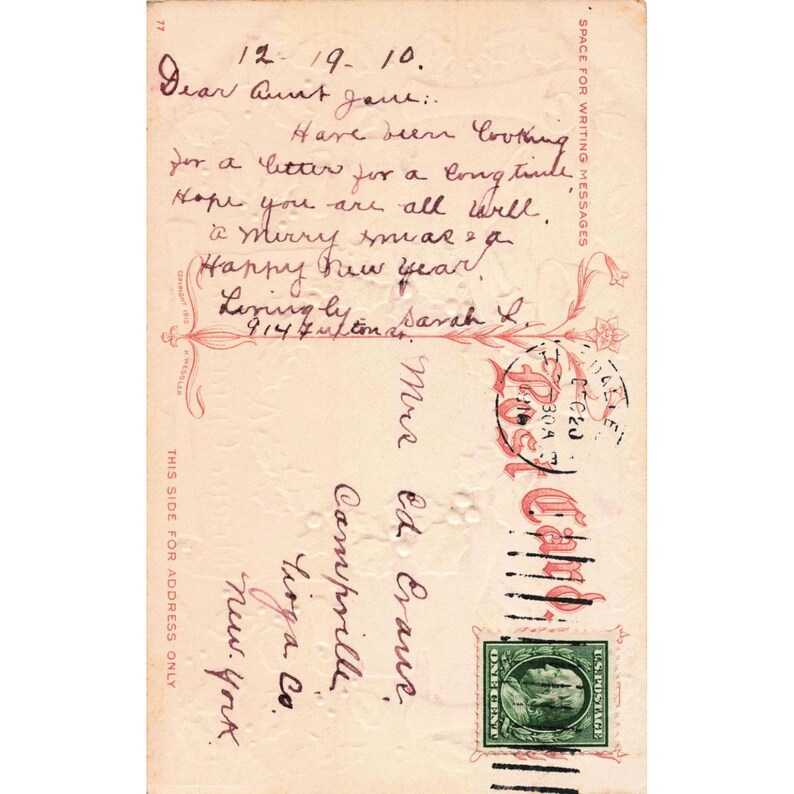 77
12 - 19 - 10.
Dear Aunt Jane:
Have been looking
for a letter for a long time,
Hope you are all well.
a merry xmas & a
Happy New Year.
Lovingly Sarah L.
914 Fulton
SPACE FOR WRITING MESSAGES
COPYRIGHT 1910
H WESSLER
Post Card.
THIS SIDE FOR ADDRESS ONLY
DEC 20
30 A
1910
Mrs Ed Evans.
Campville
Tioga Co.
New York
U.S. POSTAGE
ONE CENT